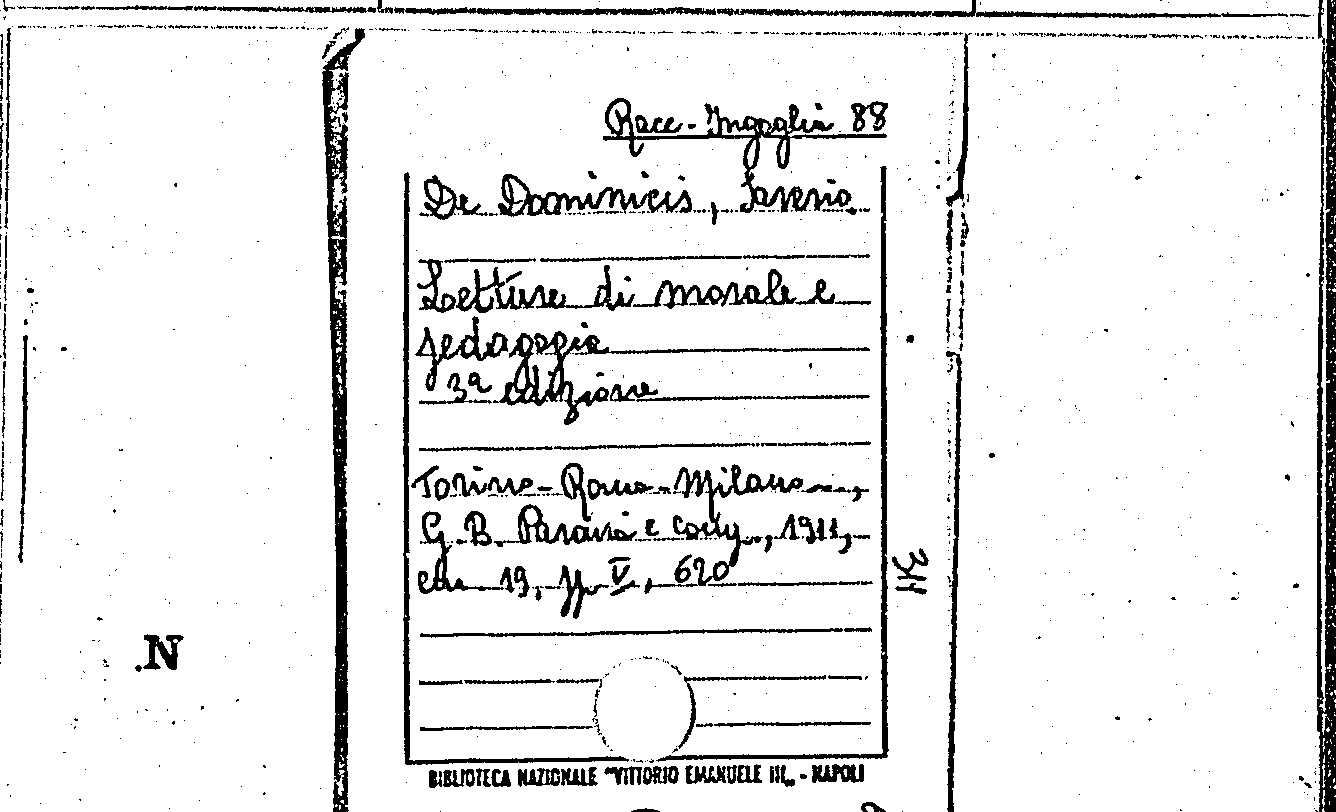 Racc. Ingoglia 88
De Dominicis, Saverio
Letture di morale e
pedagogia
3ª edizione
Torino-Roma-Milano...,
G.B. Paravia e comp., 1911,
cm. 19, pp. V, 620
314
N.
BIBLIOTECA NAZIONALE "VITTORIO EMANUELE III„ - NAPOLI